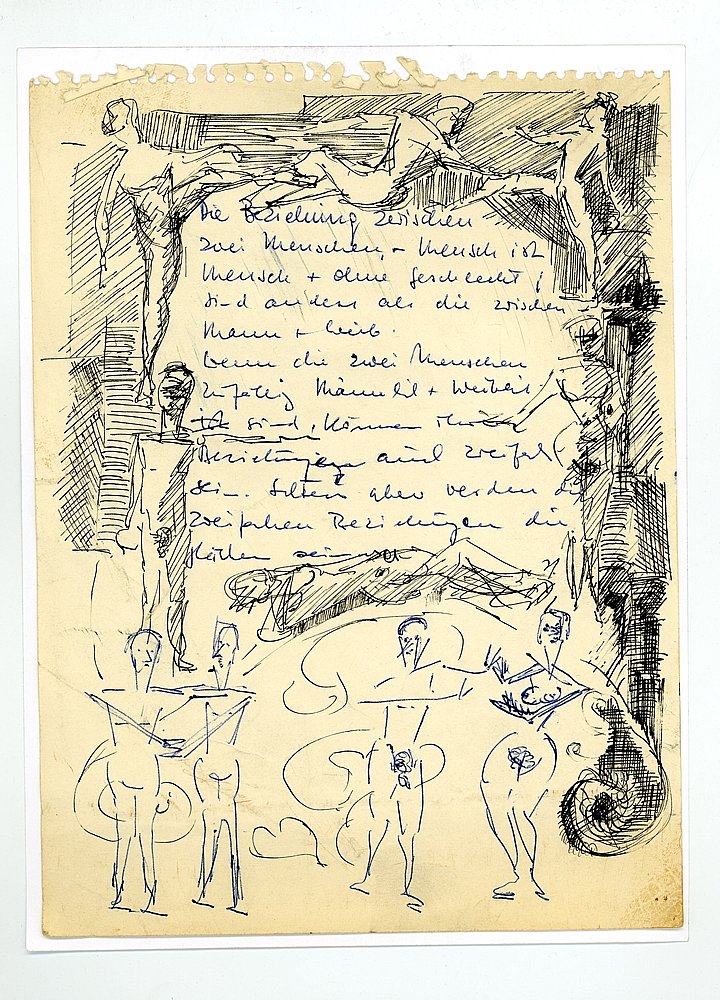 Die Beziehung zwischen
zwei Menschen, + Mensch ist
Mensch + ohne Geschlecht,
sind anders als die zwischen
Mann + Weib.
Wenn die zwei Menschen
zufällig Männlich + Weiblich
sind, können ihre
Beziehungen auch zweifach
sein. Selten aber werden die
zweifachen Beziehungen die
gleichen sein